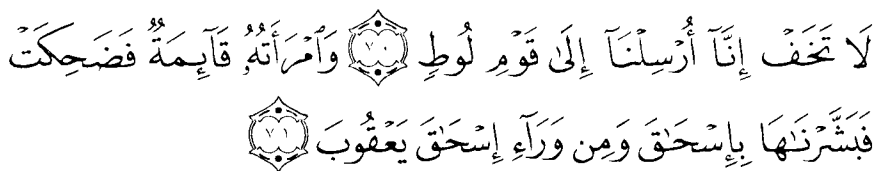 لَا تَخَفْ إِنَّآ أُرْسِلْنَآ إِلَىٰ قَوْمِ لُوطٍ ٧٠ وَٱمْرَأَتُهُۥ قَآئِمَةٌ فَضَحِكَتْ
فَبَشَّرْنَٰهَا بِإِسْحَٰقَ وَمِن وَرَآءِ إِسْحَٰقَ يَعْقُوبَ ٧١